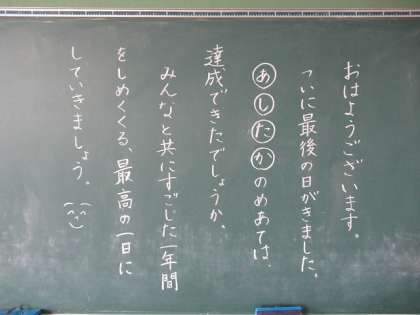 おはようございます。
ついに最後の日がきました。
あしたかのめあては、
達成できたでしょうか。
みんなと共にすごした一年間
をしめくくる、最高の一日に
していきましょう。